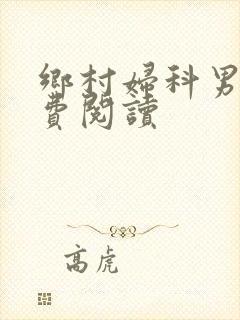 鄉村婦科男
費閱讀
高虎